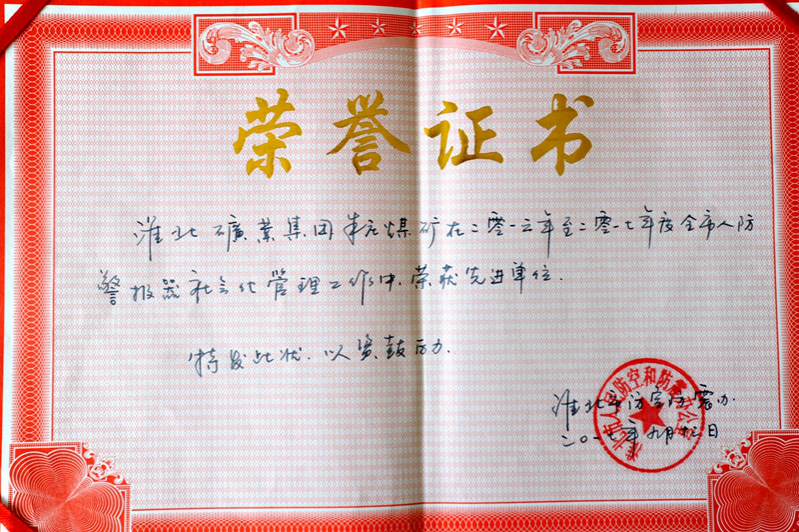 荣誉证书
淮北矿業集团朱庄煤矿在二零一三年至二零一七年度全市人防
警报器社会化管理工作中,荣获先进单位.
特发此状.以资鼓历.
淮北市人民防空和防震办公室
淮北市防空防震办
二〇一七年九月十三日